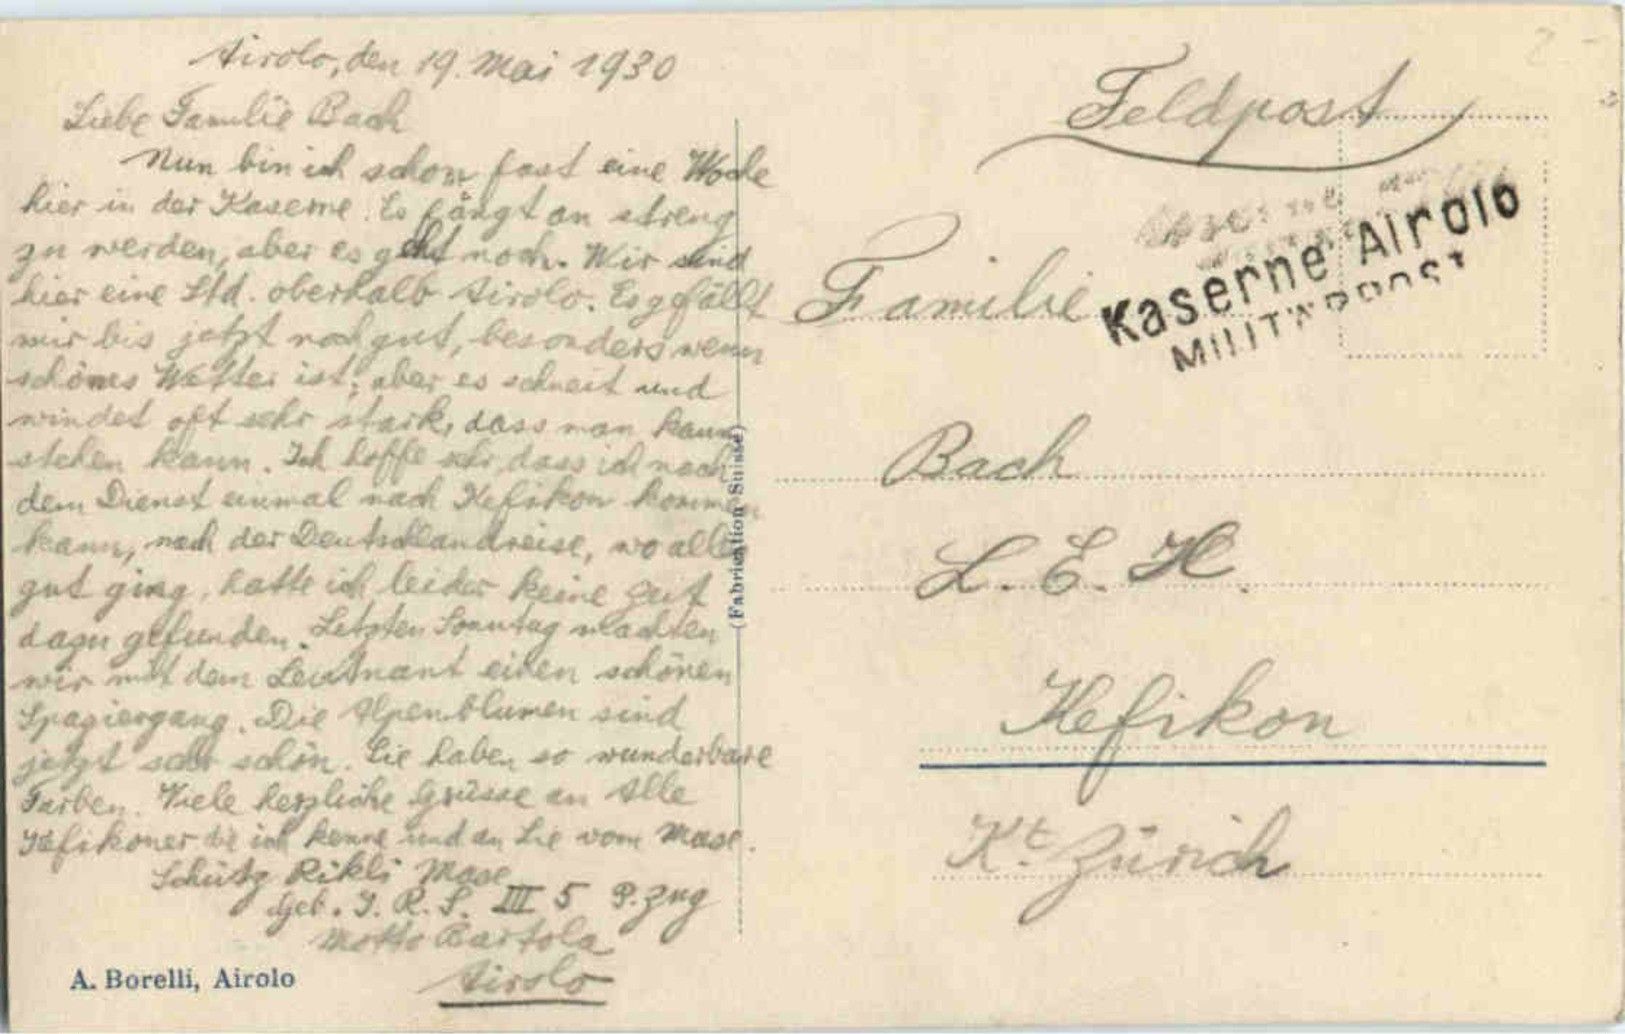 Airolo, den 19. Mai 1930
Liebe Familie Bach
Nun bin ich schon fast eine Woche
hier in der Kaserne. Es fängt an streng
zu werden, aber es geht noch. Wir sind
hier eine Std. oberhalb Airolo. Es gefällt
mir bis jetzt noch gut, besonders wenn
schönes Wetter ist, aber es schneit und
windet oft sehr stark, dass man kaum
stehen kann. Ich hoffe sehr, dass ich nach
dem Dienst einmal nach Kefikon kommen
kann, nach der Deutschlandreise, wo alles
gut ging, hatte ich leider keine Zeit
dazu gefunden. Letzten Sonntag machten
wir mit dem Leutnant einen schönen
Spaziergang. Die Alpenblumen sind
jetzt sehr schön. Sie haben so wunderbare
Farben. Viele herzliche Grüsse an Alle
Kefikoner die ich kenne und an Sie vom Mase.
Schütz Rikli Mase
Geb. I. R. S. III 5 P. Zug
Motto Bartola
Airolo
A. Borelli, Airolo
(Fabrication Suisse)
Feldpost
Kaserne Airolo
MILITÄRPOST
Familie
Bach
L. E. H.
Kefikon
Kt. Zürich